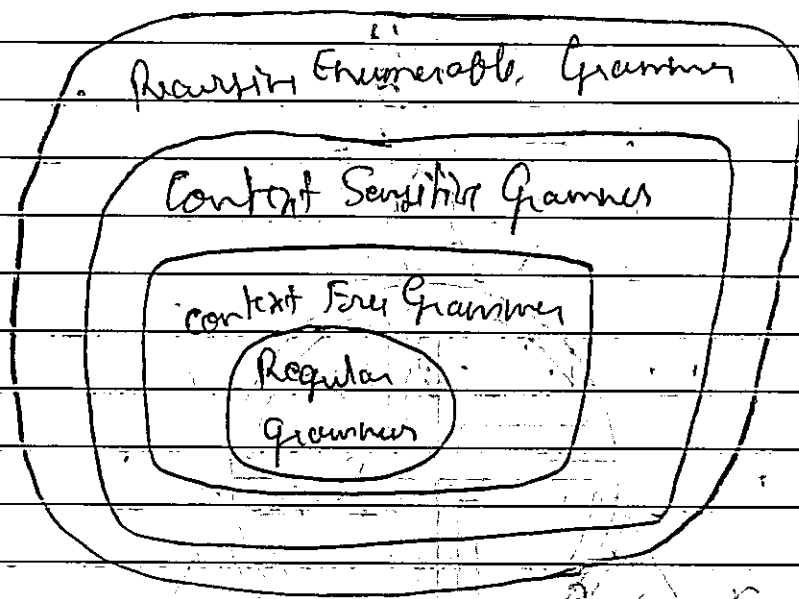 Recursive Enumerable Grammer
Context Sensitive Grammer
context Free Grammer
Regular
grammer